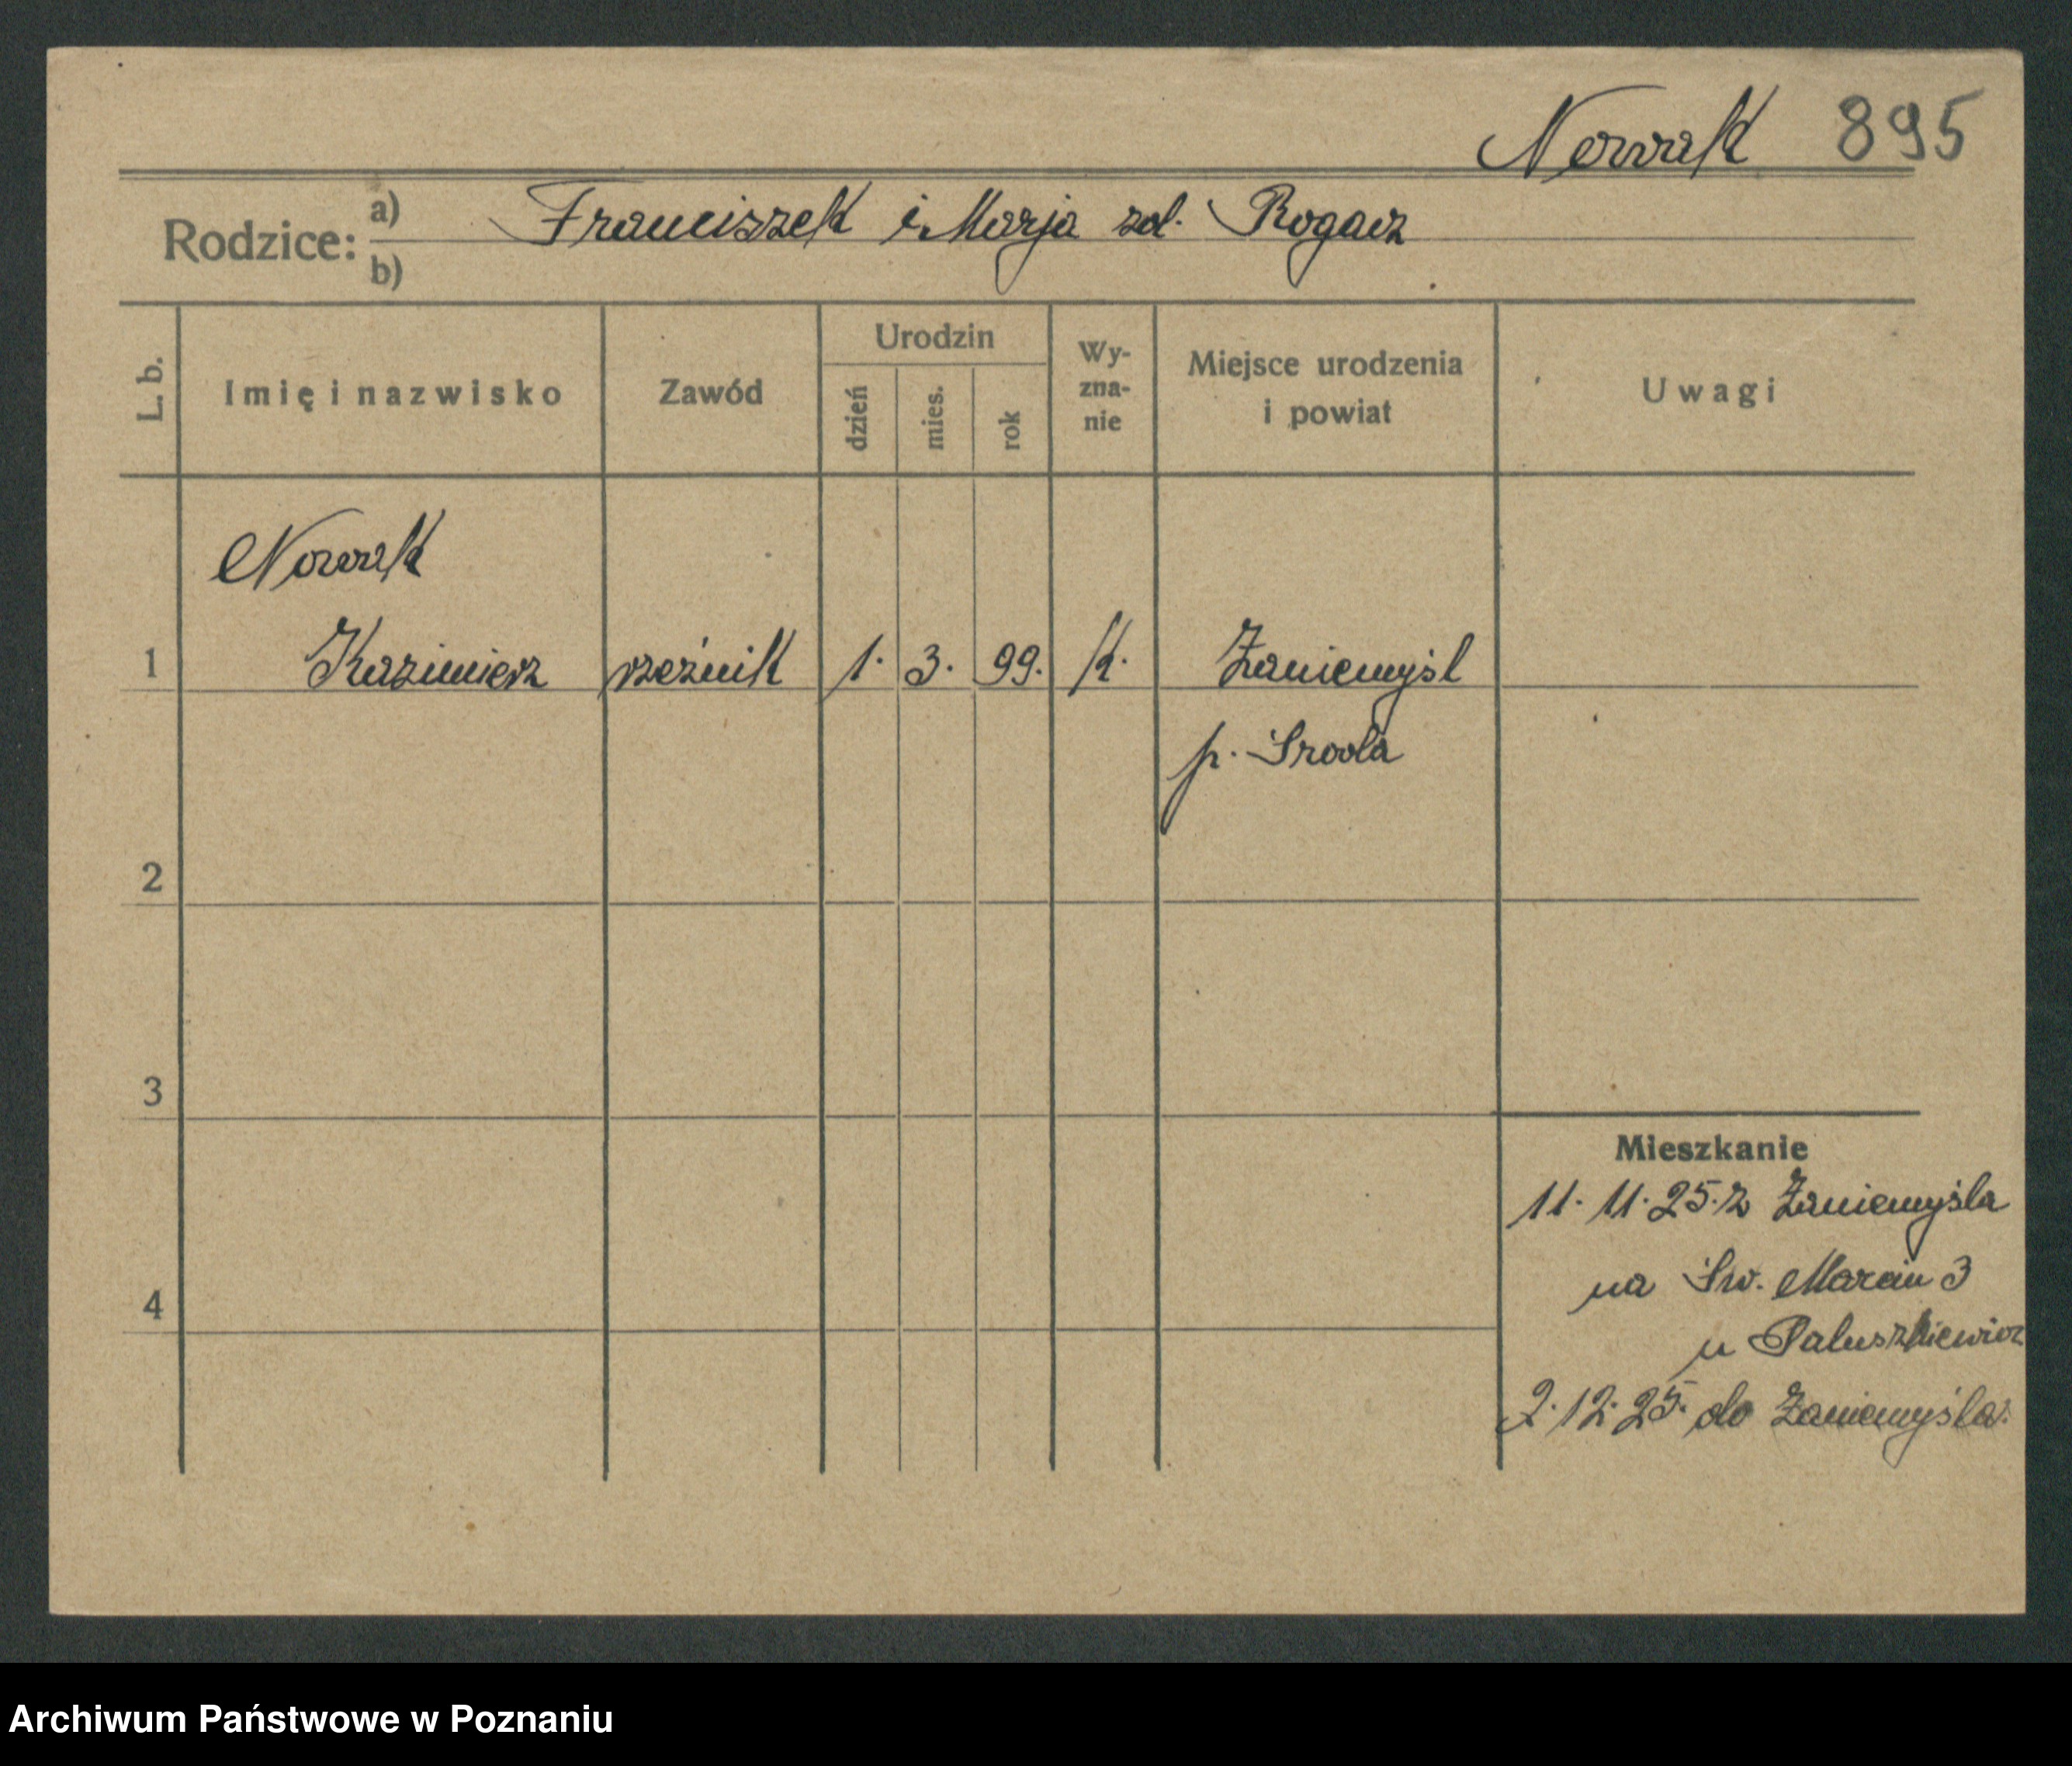 Nowak 895
Rodzice: a) Franciszek i Marja zd. Rogacz
b)
L. b. Imię i nazwisko Zawód Urodzin dzień mies. rok Wy-zna-nie Miejsce urodzenia i powiat Uwagi
Nowak
1 Kazimierz rzeźnik 1. 3. 99. k. Zaniemyśl
p. Środa
2
3
Mieszkanie
11. 11. 25. z Zaniemyśla
na Św. Marcin 3
4
u Paluszkiewicz
2. 12. 25. do Zaniemyśla.
Archiwum Państwowe w Poznaniu